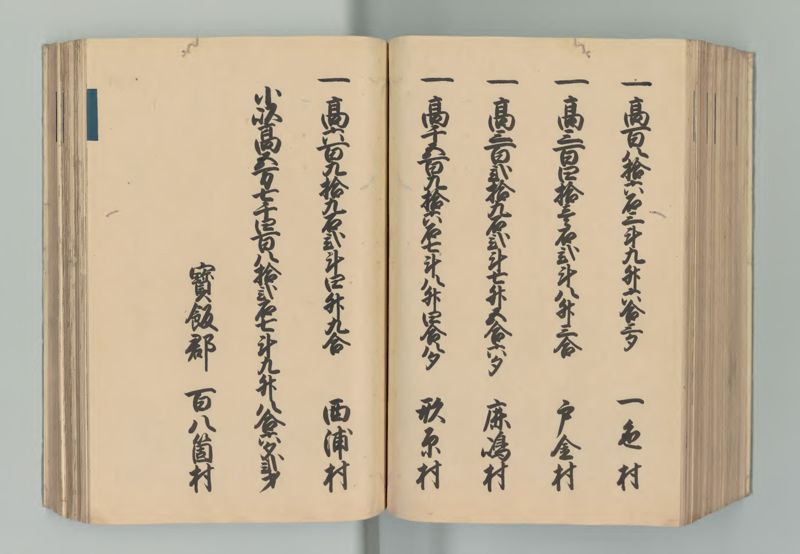 一 高百八拾六石三斗九升六合三夕 一色村
一 高三百四拾三石弐斗八升三合 戸金村
一 高三百弐拾九石弐斗七升五合六夕 鹿嶋村
一 高千五百九拾六石七斗八升四合八夕 形原村
一 高六百九拾九石弐斗四升九合 西浦村
小以高五万七千四百八拾弐石七斗九升八合六夕弐才
寶飯郡 百八箇村